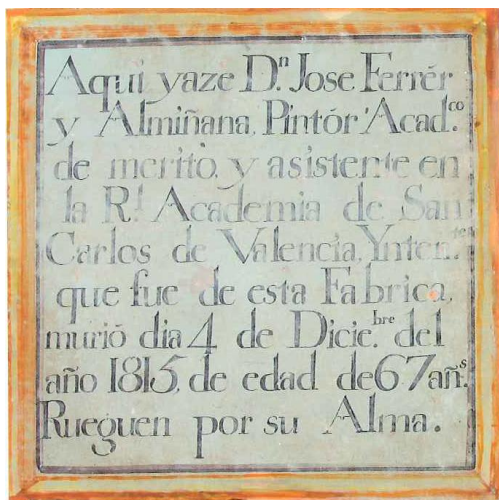 Aqui yaze D.n Jose Ferrér
y Almiñana, Pintór Acad.co
de merito, y asistente en
la R.l Academia de San
Carlos de Valencia, Ynten.te
que fue de esta Fabrica,
murió dia 4 de Dicie.bre del
año 1815, de edad de 67 añ.s
Rueguen por su Alma.